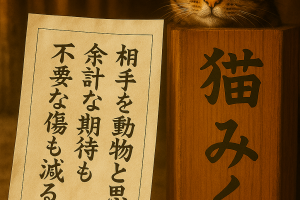 猫みく
相手を動物と思
余計な期待も
不要な傷も減る